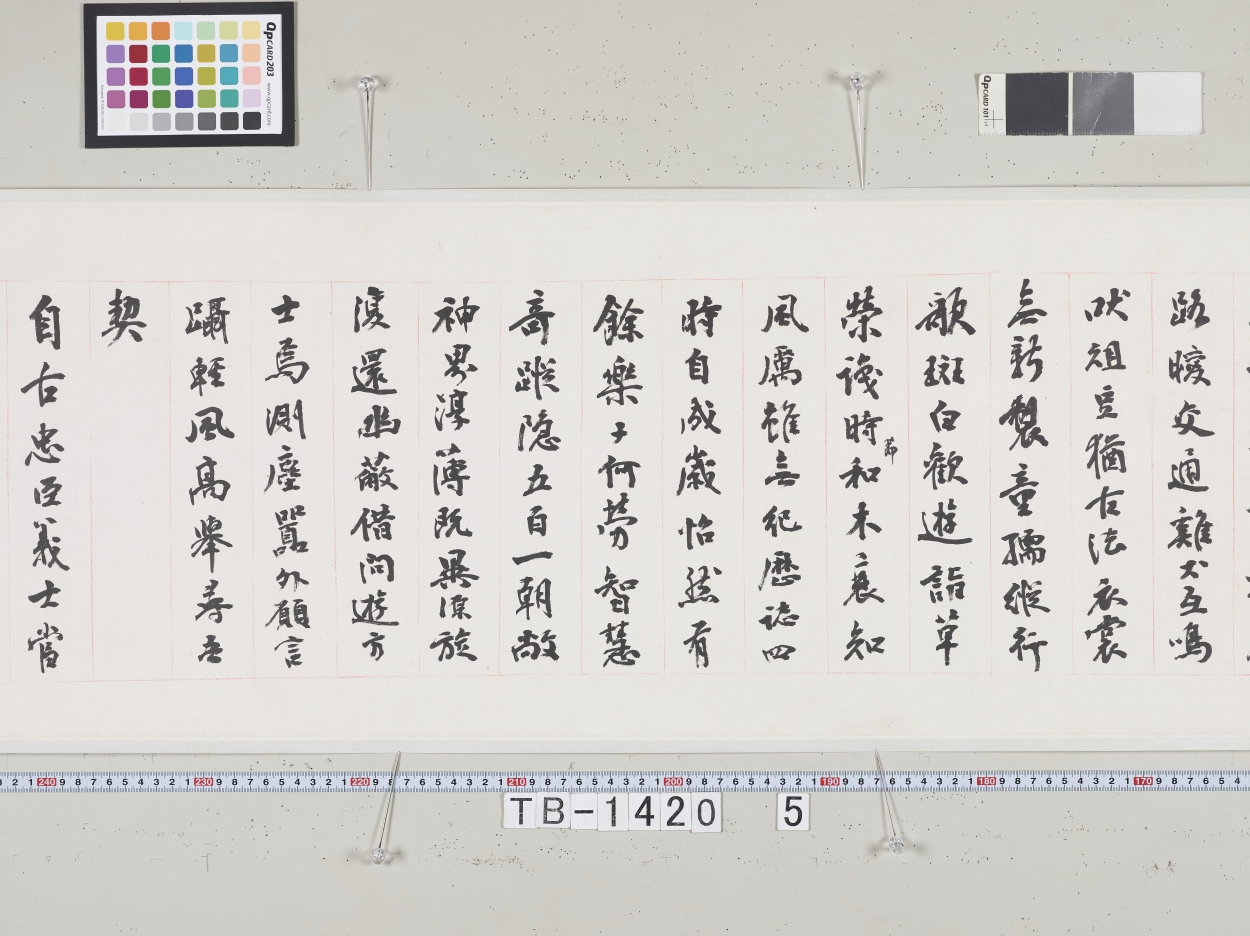 路曖交通雞犬互鳴
吠俎豆猶古法衣裳
無新製童孺縱行
歌斑白歡遊詣草
榮識時和木衰知
節
風厲雖無紀歷誌四
時自成歲怡然有
餘樂于何勞智慧
奇蹤隱五百一朝敞
神界淳薄既異源旋
復還幽蔽借問遊方
士焉測塵囂外願言
躡輕風高舉尋吾
契
自古忠臣義士當
QpCARD 203
www.qpcard.com
QpCARD 101 v4
TB-1420 5
240 230 220 210 200 190 180 170